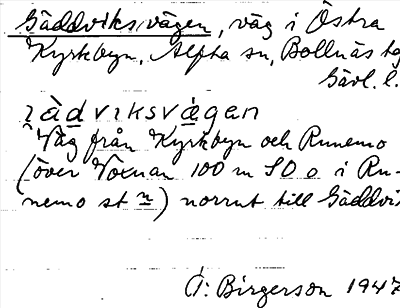 Gäddviksvägen, väg i Östra
Kyrkbyn, Alfta sn, Bollnäs tg
Gävl. l.
jàdviksvägen
Väg från Kyrkbyn och Runemo
(över Voxnan 100 m SO o i Ru-
nemo st n) norrut till Gäddvik
A: Birgerson 1947